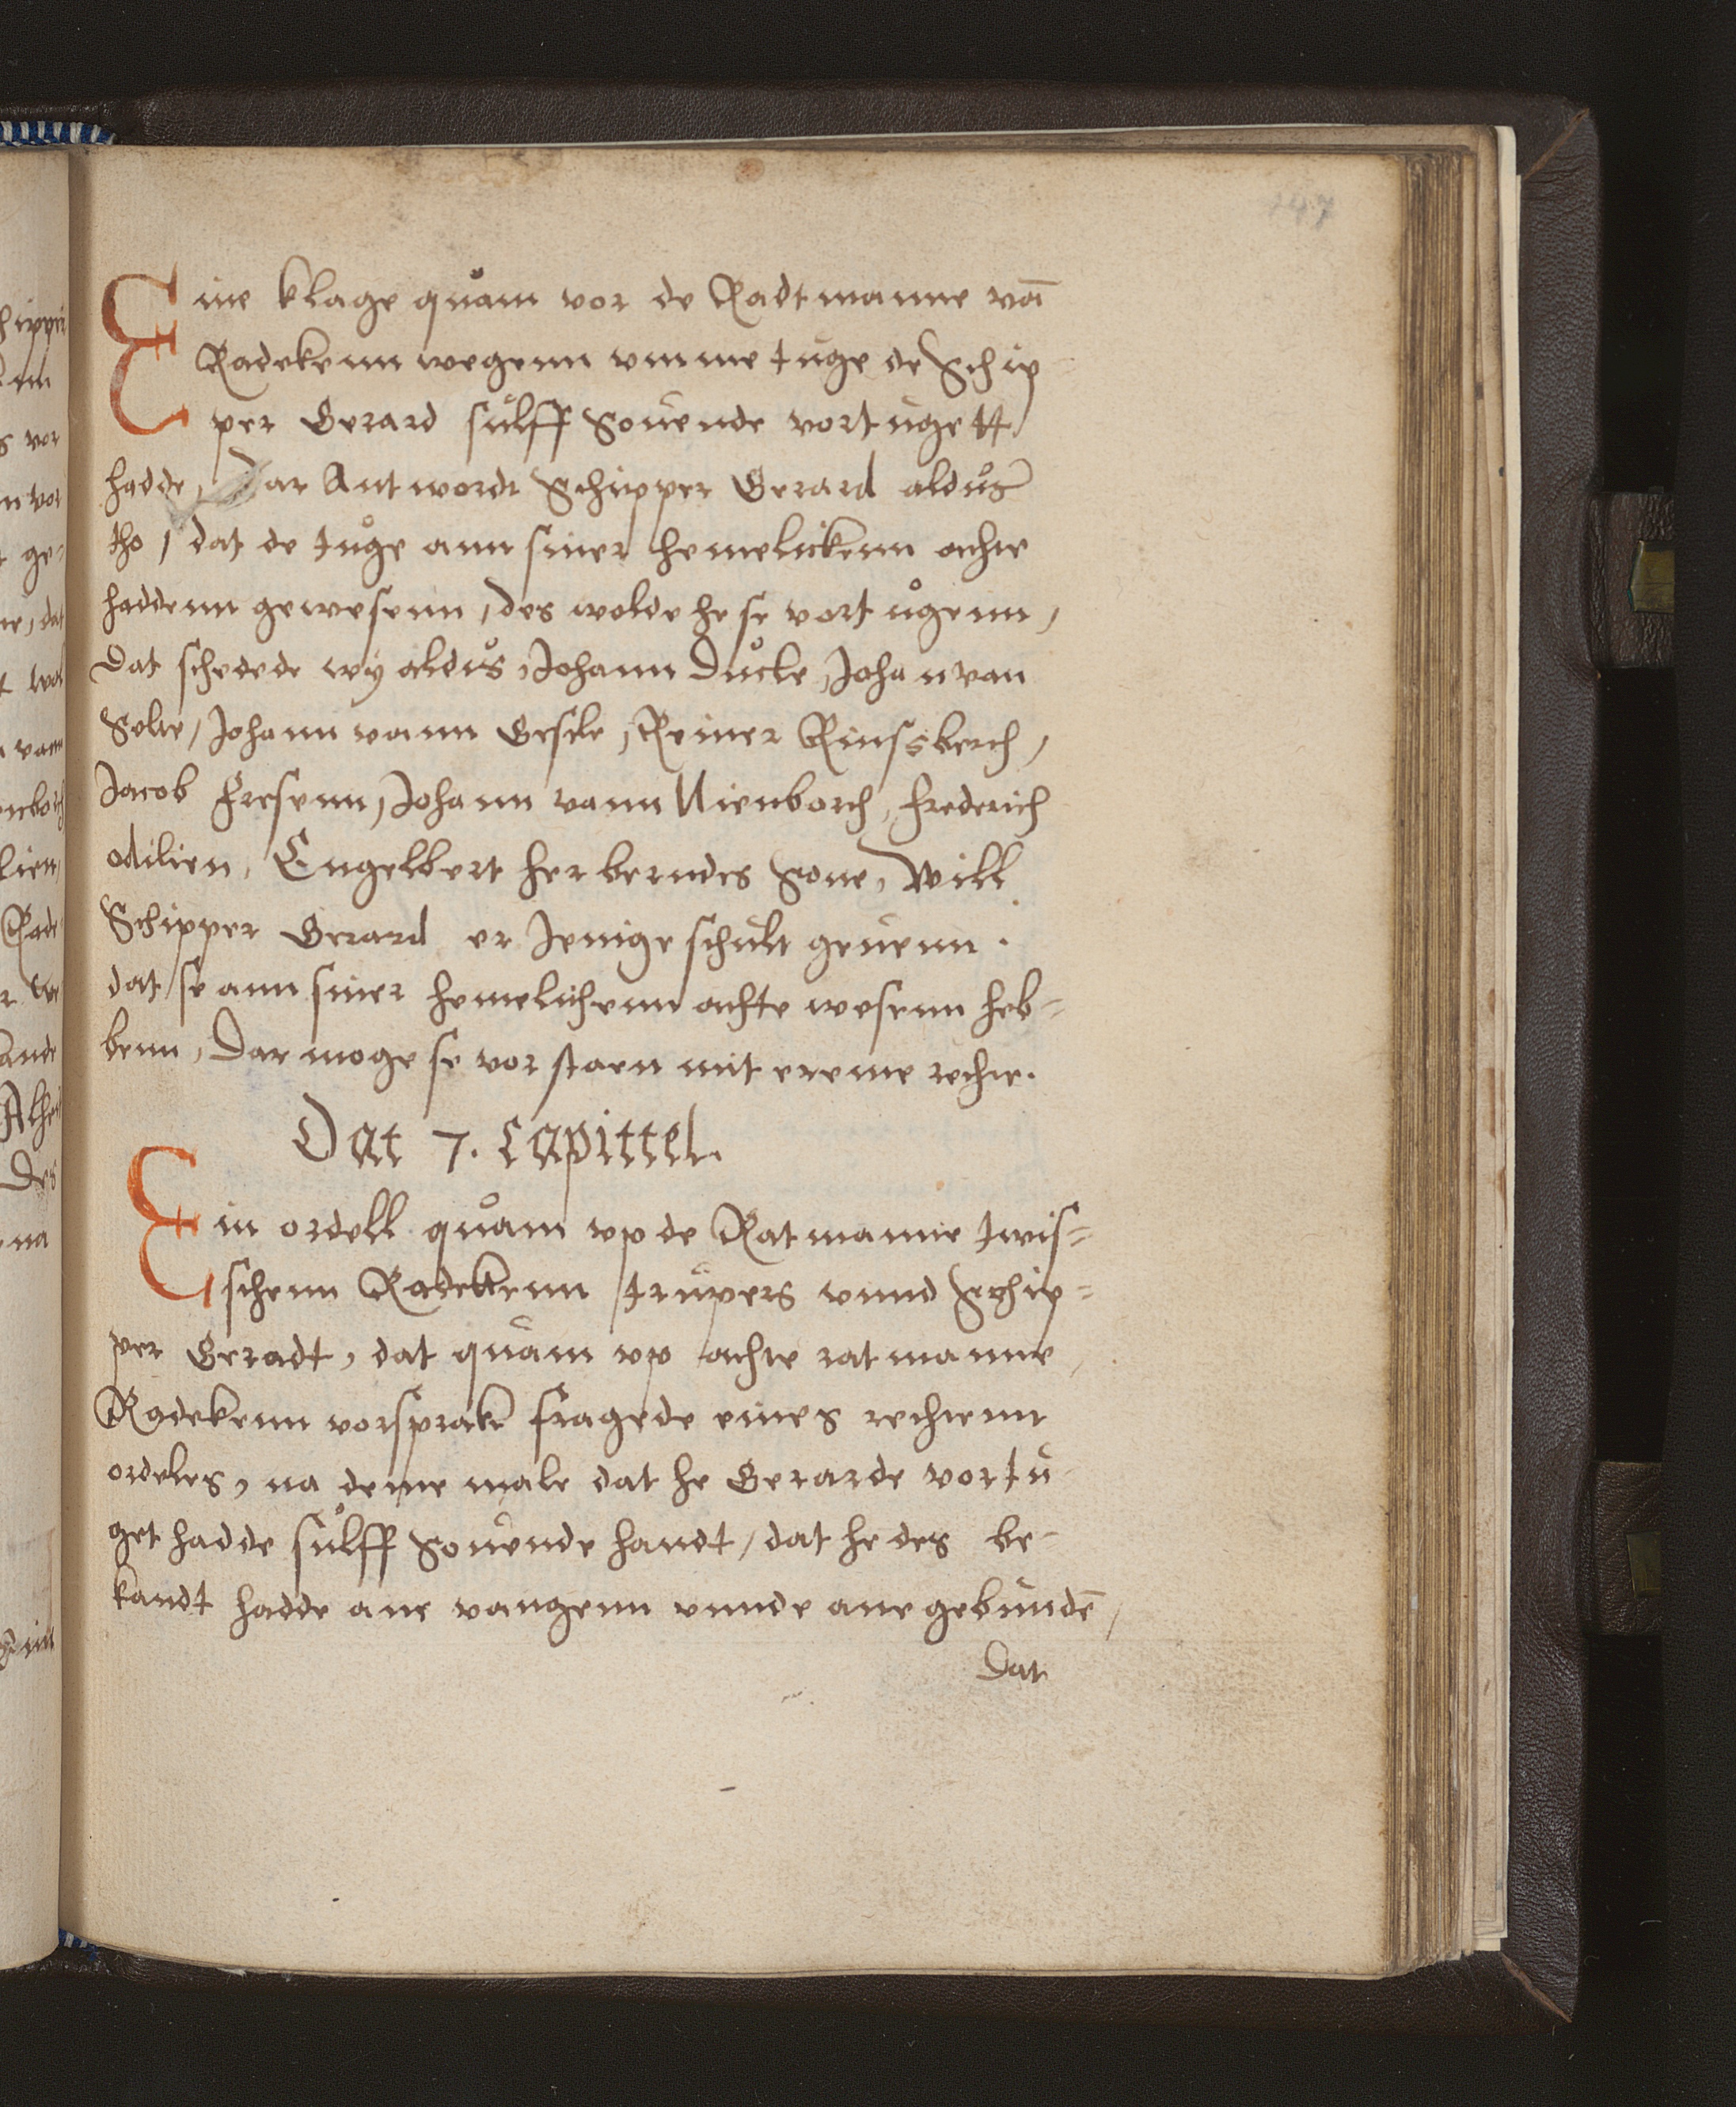 147
Eine klage quam vor de Radtmanne vā
Radekenn wegenn vmme tuge de Schip
per Gerard sulff Souende vortugett
hadde, Dar Antwordt Schipper Gerard aldus
tho, dat de tuge ann siner hemelickenn achte
haddenn gewesenn, des wolde he se vortugenn,
Dat schedede wy aldus, Johann Ducke, Johan van
Solte, Johann vann Gesele, Reiner Rinssberch,
Jacob Fresenn, Johann vann Nienborch, frederich
odilien, Engelbert her berndes Sone, Will
Schipper Gerard er Jenige schult geuenn.
dat se ann siner hemelichenn achte wesenn heb-
benn, Dar moge se vor staen mit ereme rechte.
Dat 7. Capittel.
Ein ordell quam vp de Ratmanne twis-
schenn Radekenn trupers vnnd Schip-
per Geradt, dat quam vp achte ratmanne,
Radekenn vorsprake fragede eines rechtenn
ordeles, na deme male dat he Gerarde vortu
get hadde sulff Souende handt, dat he des be-
kandt hadde ane vangenn vnnde ane gebundē,
Dat